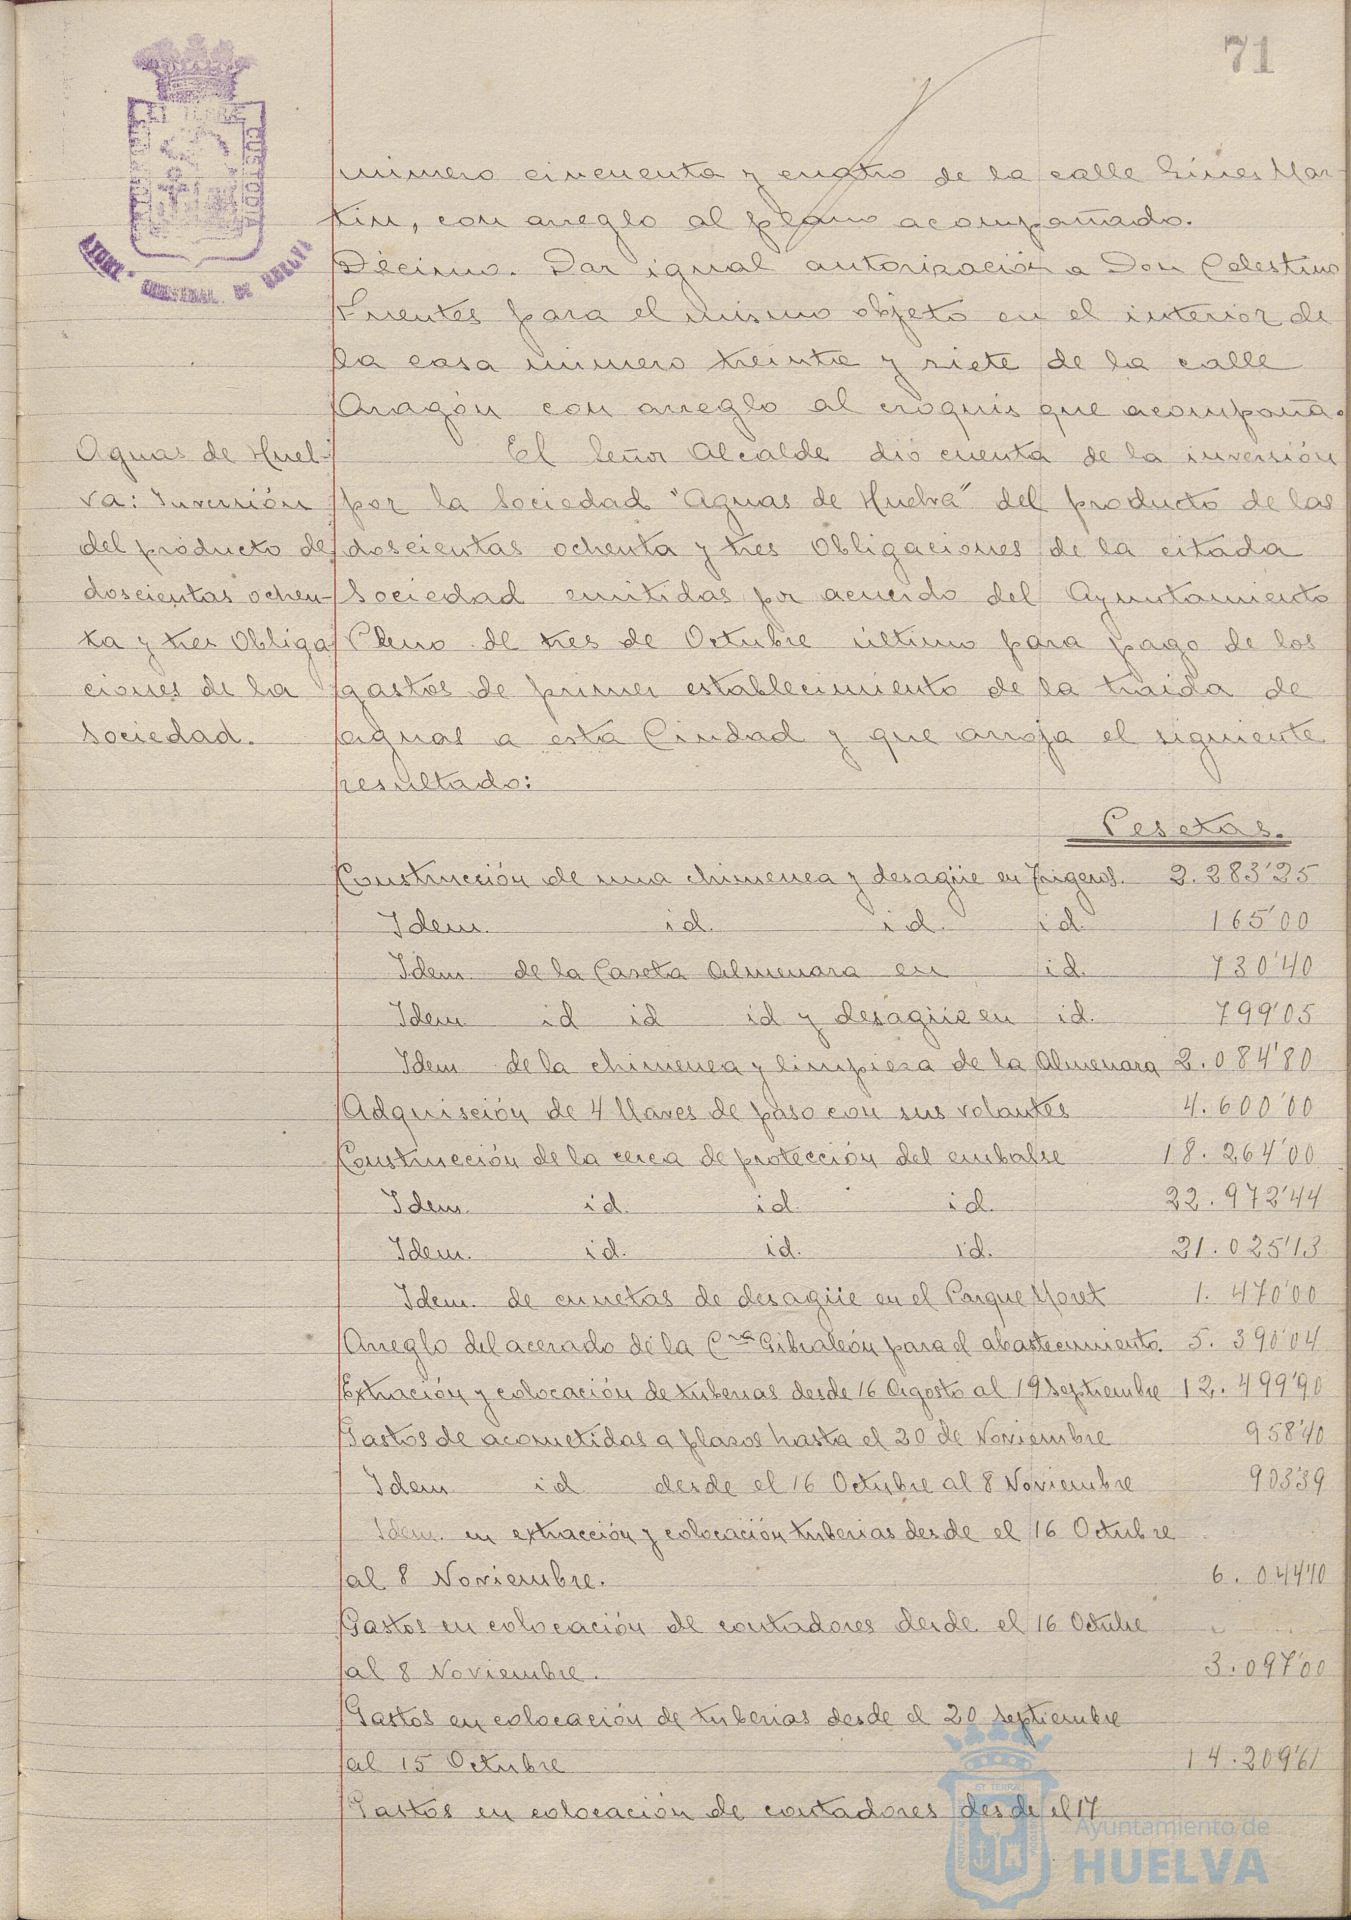 71
número cincuenta y cuatro de la calle Ginés Mar-
tín, con arreglo al plano acompañado.
Décimo. Dar igual autorización a Don Celestino
Fuentes para el mismo objeto en el interior de
la casa número treinta y siete de la calle
Aragón con arreglo al croquis que acompaña.
Aguas de Huel-
va: Inversión
del producto de
doscientas ochen-
ta y tres Obliga
ciones de la
Sociedad.
El Señor Alcalde dió cuenta de la inversión
por la Sociedad "Aguas de Huelva" del producto de las
doscientas ochenta y tres Obligaciones de la citada
Sociedad emitidas por acuerdo del Ayuntamiento
Pleno de tres de Octubre último para pago de los
gastos de primer establecimiento de la traida de
aguas a esta Ciudad y que arroja el siguiente
resultado:
Pesetas.
Construcción de una chimenea y desagüe en Trigueros. 2.283'25
Idem. id. id. id. 165'00
Idem de la Caseta Almenara en id. 730'40
Idem id id id y desagüe en id. 799'05
Idem de la chimenea y limpieza de la Almenara 2.084'80
Adquisción de 4 llaves de paso con sus volantes 4.600'00
Construcción de la cerca de protección del embalse 18.264'00
Idem. id. id. id. 22.972'44
Idem. id. id. id. 21.025'13
Idem. de cunetas de desagüe en el Parque Moret 1.470'00
Arreglo del acerado de la Cra Gibraleón para el abastecimiento. 5.390'04
Extración y colocación de tuberias desde 16 Agosto al 19 Septiembre 12.499'90
Gastos de acometidas a plazos hasta el 20 de Noviembre 958'40
Idem id desde el 16 Octubre al 8 Noviembre 903'39
Idem. en extracción y colocación tuberias desde el 16 Octubre
al 8 Noviembre. 6.044'10
Gastos en colocación de contadores desde el 16 Octubre
al 8 Noviembre. 3.097'00
Gastos en colocación de tuberias desde el 20 Septiembre
al 15 Octubre 14.209'61
Gastos en colocación de contadores desde el 17
Ayuntamiento de
HUELVA